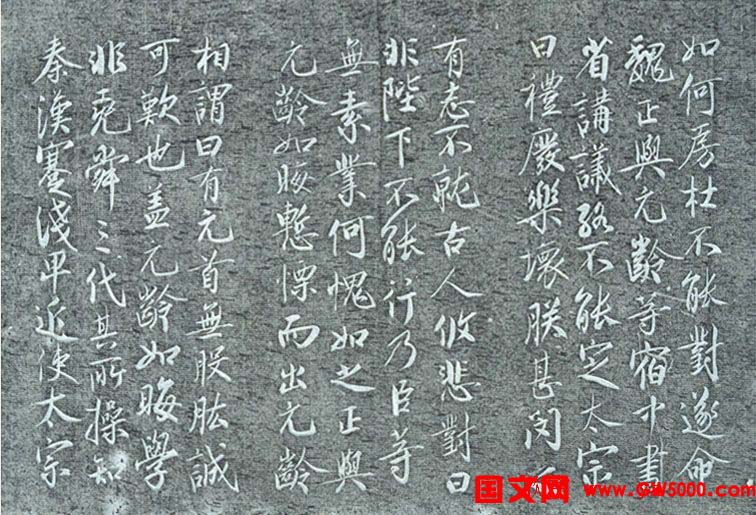 如何房杜不能對遂命
魏正與元齡等宿中書
省講議終不能定太宗
曰禮廢樂壞朕甚閔
有志不就古人攸悲對曰
非陛下不能行乃臣等
無素業何愧如之正與
元齡如晦慙慄而出元齡
相謂曰有元首無股肱誠
可歎也盖元齡如晦學
非堯舜三代其所操知
秦漢蹇淺卑近使太宗
国文网 www.GW5000.com